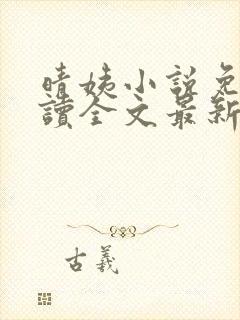 晴姨小說免
讀全文最新
古羲